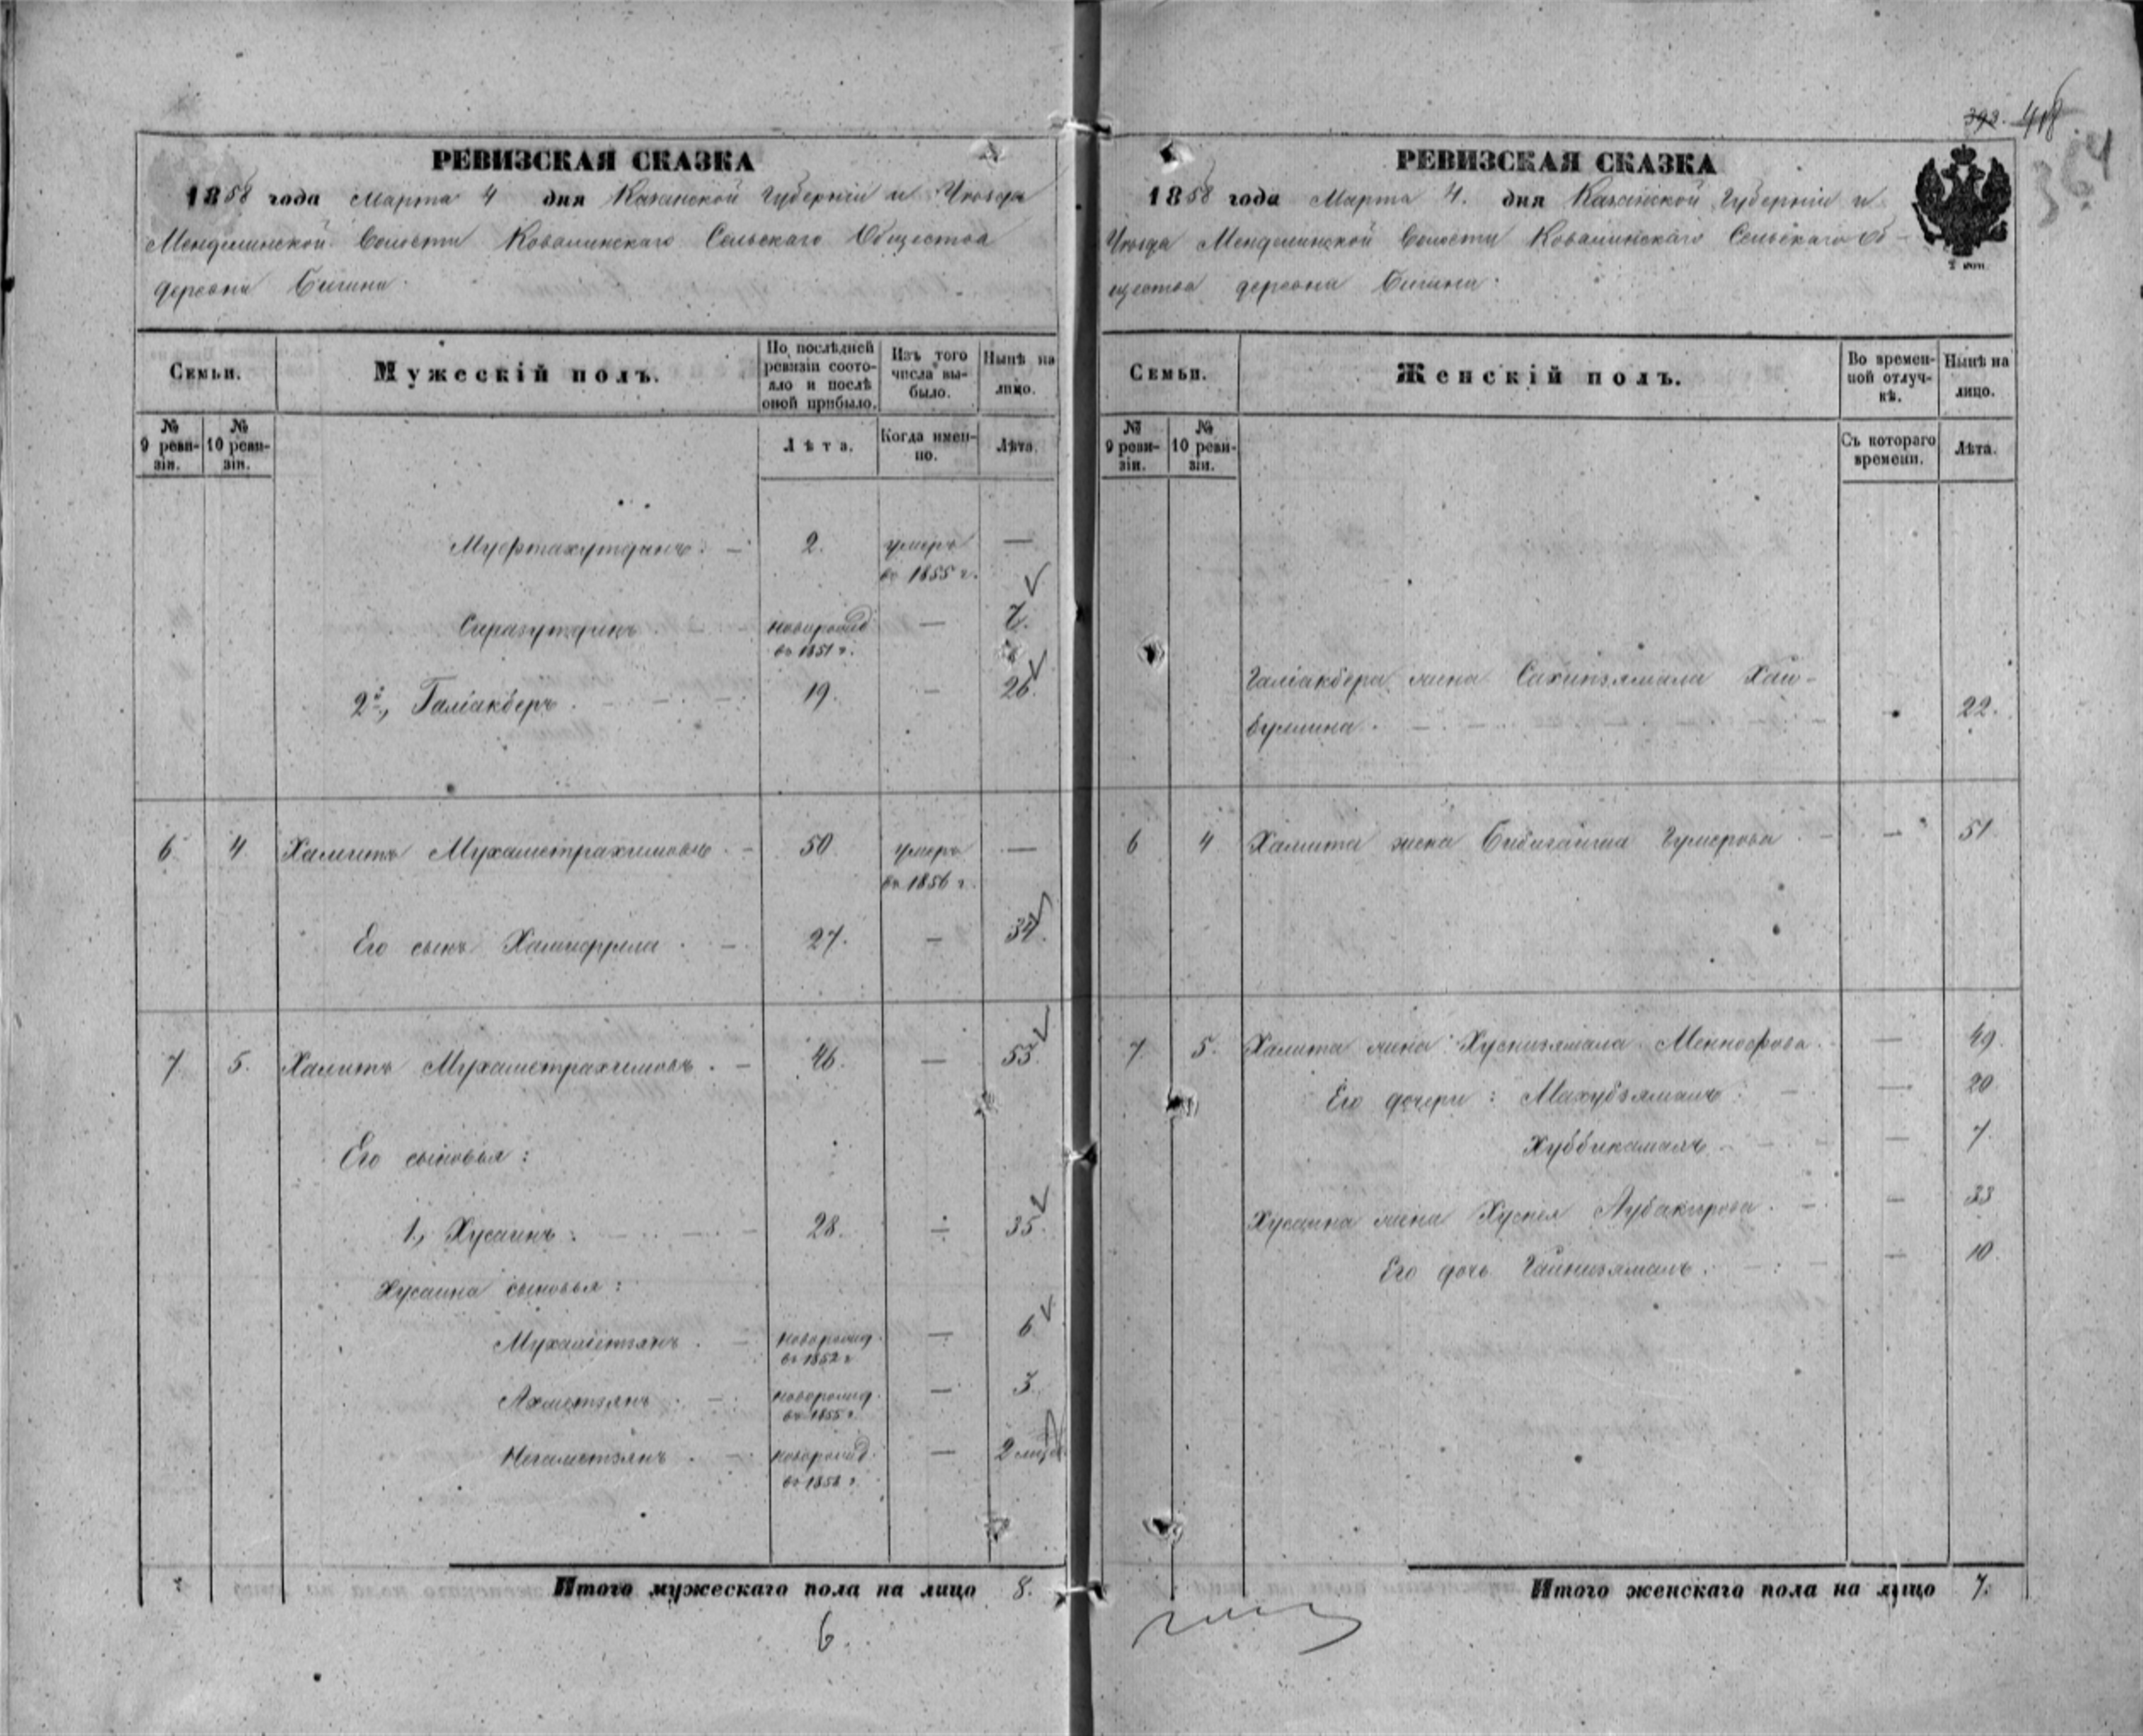 393. 418
364
РЕВИЗСКАЯ СКАЗКА
1858 года Марта 4 дня Казанской Губерніи и Уѣзда
Менделинской Волости Ковалинскаго Сельскаго Общества
деревни Бимери
Семьи.
Мужескій полъ.
По послѣдней ревизіи состояло и послѣ оной прибыло.
Изъ того числа выбыло.
Нынѣ на лицо.
№ 9 ревизіи.
№ 10 ревизіи.
Лѣта.
Когда именно.
Лѣта.
Муфтахутдинъ. — 2. умеръ —
въ 1855 г.
Сиразутдинъ — новорожд — 7.
въ 1851 г.
2й, Галіакберъ. — 19. — 26.
6 4 Хамитъ Мухаметрахимовъ — 50 умеръ —
въ 1856 г.
Его сынъ — 27. — 34.
7 5. Халитъ Мухаметрахимовъ. — 46. — 53.
Его сыновья:
1, Хусаинъ: — 28. — 35.
Хусаина сыновья:
Мухаметзянъ. — новорожд. — 6
въ 1852 г
Ахметзянъ — новорожд. — 3.
въ 1855 г.
Негаметзянъ. — новорожд. — 2 мѣс
въ 1858 г.
Итого мужескаго пола на лицо 8.
6.
РЕВИЗСКАЯ СКАЗКА
1858 года Марта 4. дня Казанской Губерніи и
Уѣзда Менделинской Волости Ковалинскаго Сельскаго Об-
щества деревни
Семьи.
Женскій полъ.
Во временной отлучкѣ.
Нынѣ на лицо.
№ 9 ревизіи.
№ 10 ревизіи.
Съ котораго времени.
Лѣта.
Галіакбера жена Сахипзямала Хай-
буллина. — 22.
6 4 Хамита жена Бибигайша Гумерова — 51
7 5. Халита жена Хуснизямала — 49.
Его дочери: Махубзямалъ — 20
Хуббикамалъ — 7.
Хусаина жена Хусня Аубакирова. — 33
Его дочь Гайнизямалъ. — 10.
Итого женскаго пола на лицо 7.